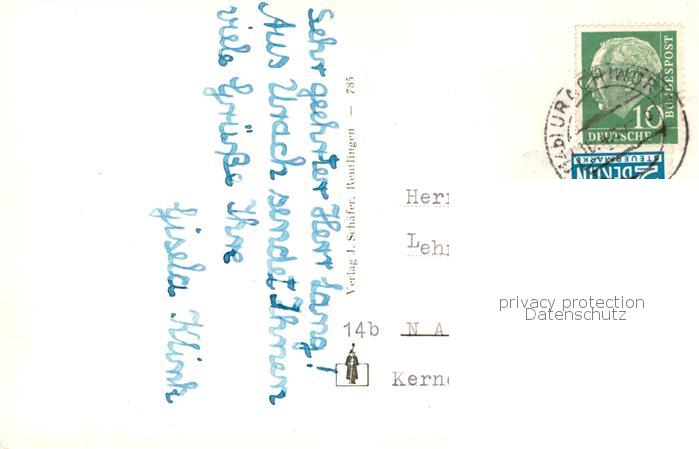 Sehr geehrter Herr Lang!
Aus Urach sendet Ihnen
viele Grüße Ihre
Gisela Klink
Verlag J. Schäfer, Reutlingen — 785
10
DEUTSCHE
BUNDESPOST
URACH (WÜRTT
STEUERMARKE
2
Herr
Lehr
14b N A
Kern
privacy protection
Datenschutz